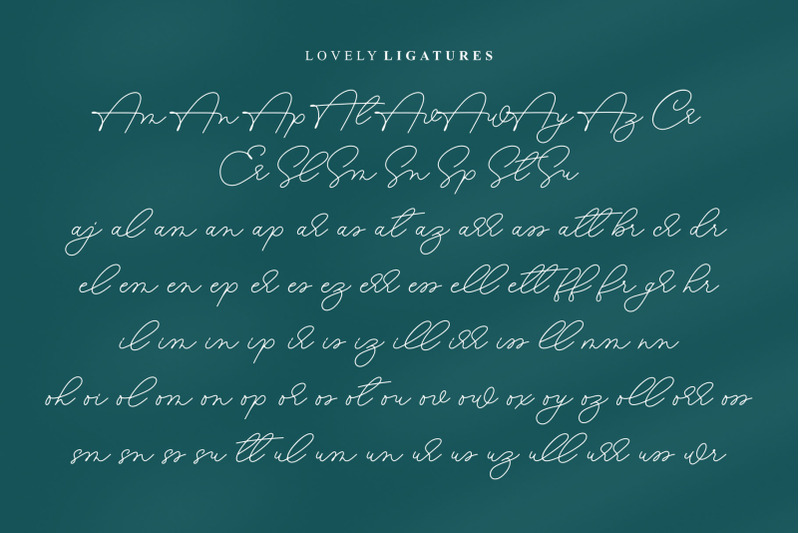 LOVELY LIGATURES
Am An Ap At Av Aw Ay Az Cr
Er Sl Sm Sn Sp St Su
aj al am an ap ar as at az arr ass att br cr dr
el em en ep er es ez err ess ell ett ff fr gr hr
il im in ip ir is iz ill irr iss ll mm nn
oh oi ol om on op or os ot ou ov ow ox oy oz oll orr oss
sm sn ss su tt ul um un ur us uz ull urr uss wr